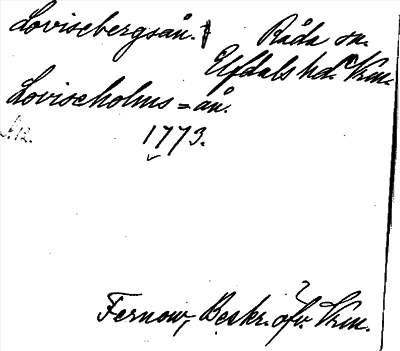 Lovisebergsån. Råda sn.
Elfdals hd. Vrm.
Loviseholms=ån.
1773.
Fernow, Beskr. öfv. Vrm.